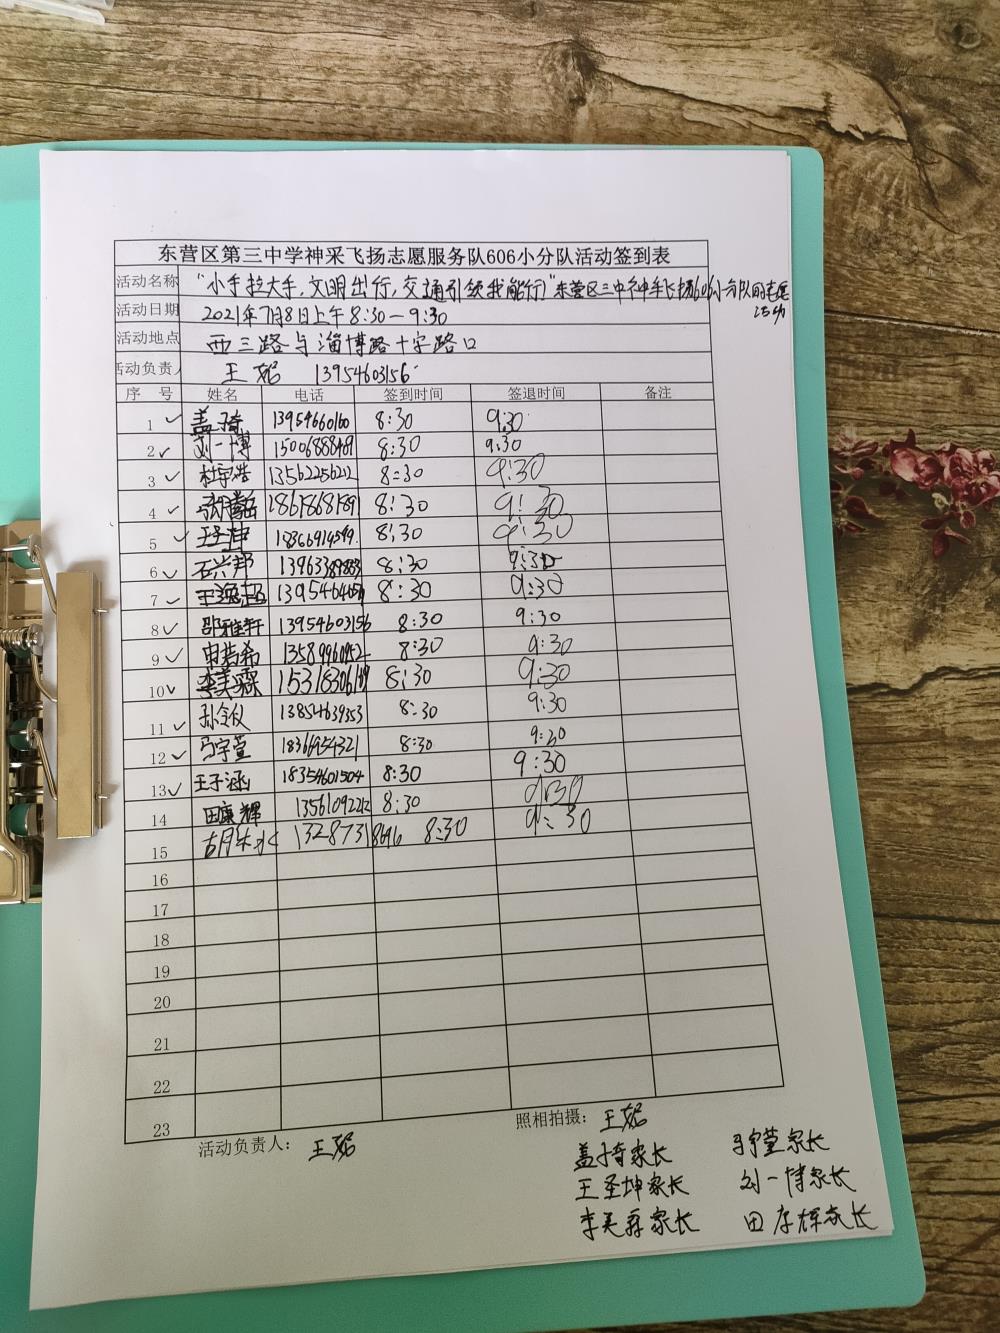 东营区第三中学神采飞扬志愿服务队606小分队活动签到表
活动名称 “小手拉大手,文明出行,交通引领我能行”东营区三中神采飞扬606小分队周志愿活动
活动日期 2021年7月8日上午8:30—9:30
活动地点 西三路与淄博路十字路口
活动负责人 王妮 13954603156
序 号 姓名 电话 签到时间 签退时间 备注
1 ✓ 盖子琦 13954660160 8:30 9:30
2 ✓ 刘一博 15006888469 8:30 9:30
3 ✓ 杜宇浩 13562256212 8:30 9:30
4 ✓ 18615868189 8:30 9:30
5 ✓ 王圣坤 8:30 9:30
6 ✓ 石兴邦 8:30 9:30
7 ✓ 王逸超 8:30 9:30
8 ✓ 邵雅轩 13954603156 8:30 9:30
9 ✓ 申若希 8:30 9:30
10 ✓ 李美霖 8:30 9:30
11 ✓ 孙令仪 13854639353 8:30 9:30
12 ✓ 马宇萱 18366954321 8:30 9:30
13 ✓ 王子涵 18354601504 8:30 9:30
14 田康辉 13561092212 8:30 9:30
15 13287318696 8:30 9:30
16
17
18
19
20
21
22
23
活动负责人: 王妮 照相拍摄: 王妮
盖子琦家长 马宇萱家长
王圣坤家长 刘一博家长
李美霖家长 田康辉家长